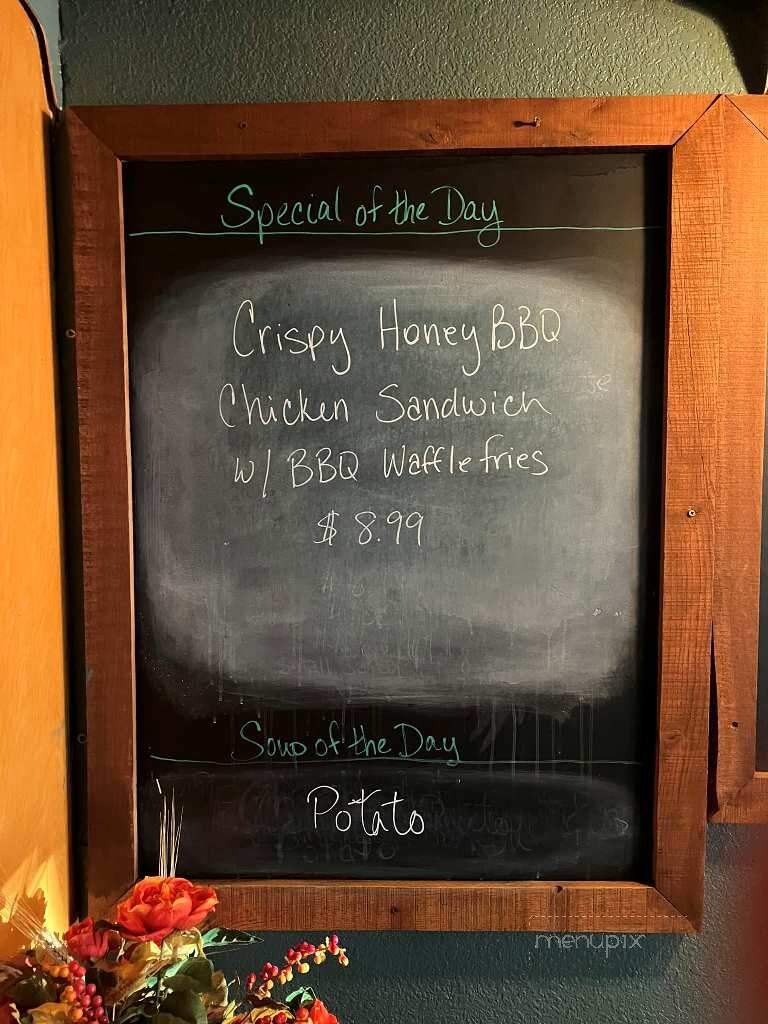 Special of the Day
Crispy Honey BBQ
Chicken Sandwich
w/ BBQ Waffle fries
$ 8.99
Soup of the Day
Potato
menupix